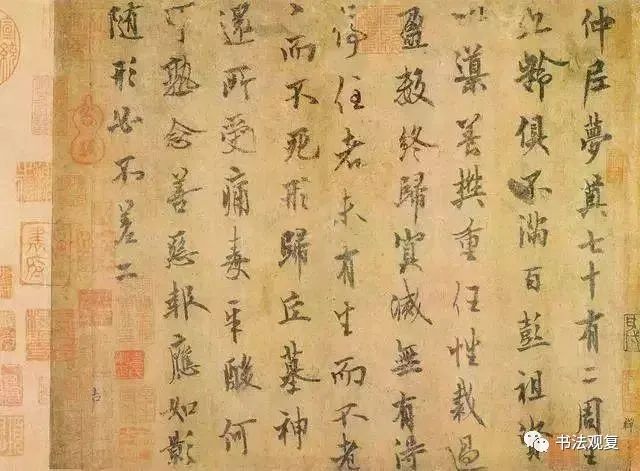 仲尼夢奠七十有二周王
九齡俱不滿百彭祖資
以導養樊重任性裁過
盈數終歸冥滅無有得
停住者未有生而不老
老而不死形歸丘墓神
還所受痛毒辛酸何
可熟念善惡報應如影
隨形必不差二
书法观复